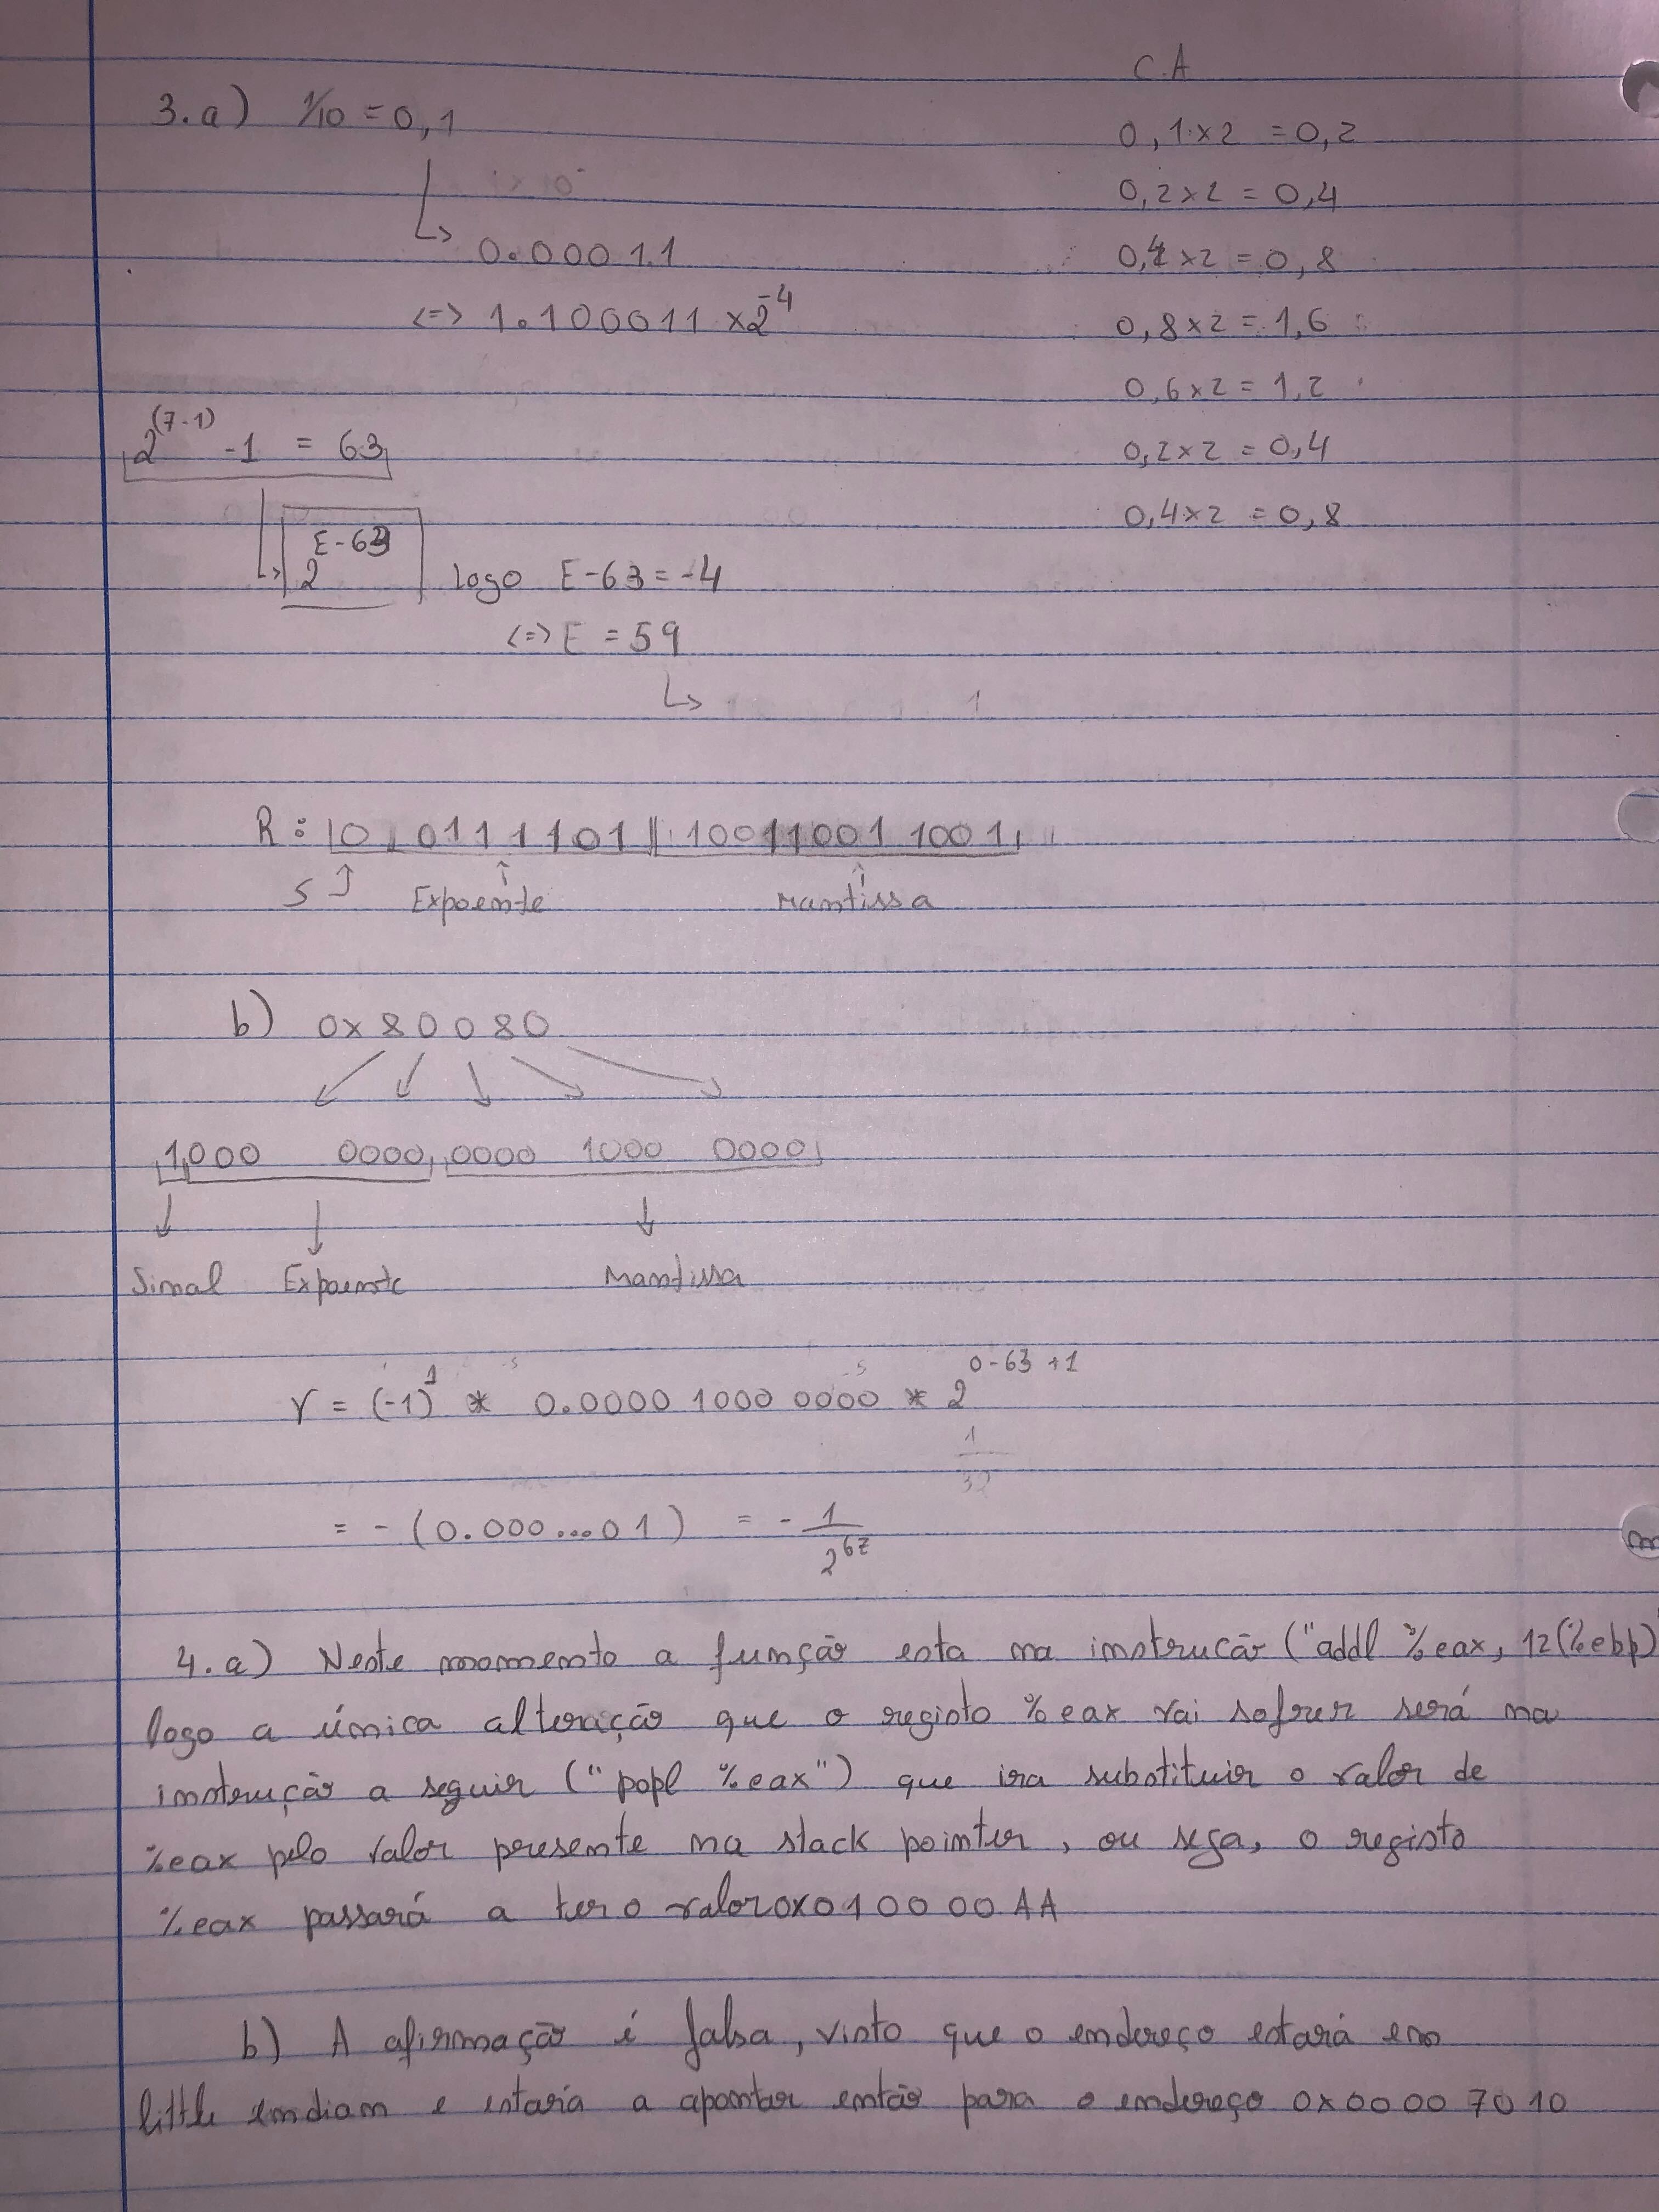 C.A
3.a) 1/10 = 0,1
0,1 x 2 = 0,2
0,2 x 2 = 0,4
0.00011
0,4 x 2 = 0,8
<=> 1.100011 x 2^-4
0,8 x 2 = 1,6
0,6 x 2 = 1,2
2^(7-1) -1 = 63
0,2 x 2 = 0,4
0,4 x 2 = 0,8
2^E-63 logo E-63 = -4
<=> E = 59
R: 0 0111101 100110011001
S Expoente Mantissa
b) 0x80080
1000 0000 0000 1000 0000
Sinal Expoente Mantissa
r = (-1)^1 * 0.0000 1000 0000 * 2^0-63+1
1/32
= - (0.000...01) = - 1/2^67
4.a) Neste momento a função esta na instrucão ("addl %eax, 12(%ebp)
logo a única alteração que o registo %eax vai sofrer será na
instrução a seguir ("popl %eax") que ira substituir o valor de
%eax pelo valor presente na stack pointer, ou seja, o registo
%eax passará a ter o valor 0x010000AA
b) A afirmação é falsa, visto que o endereço estará em
little endian e estaria a apontar então para o endereço 0x00007010